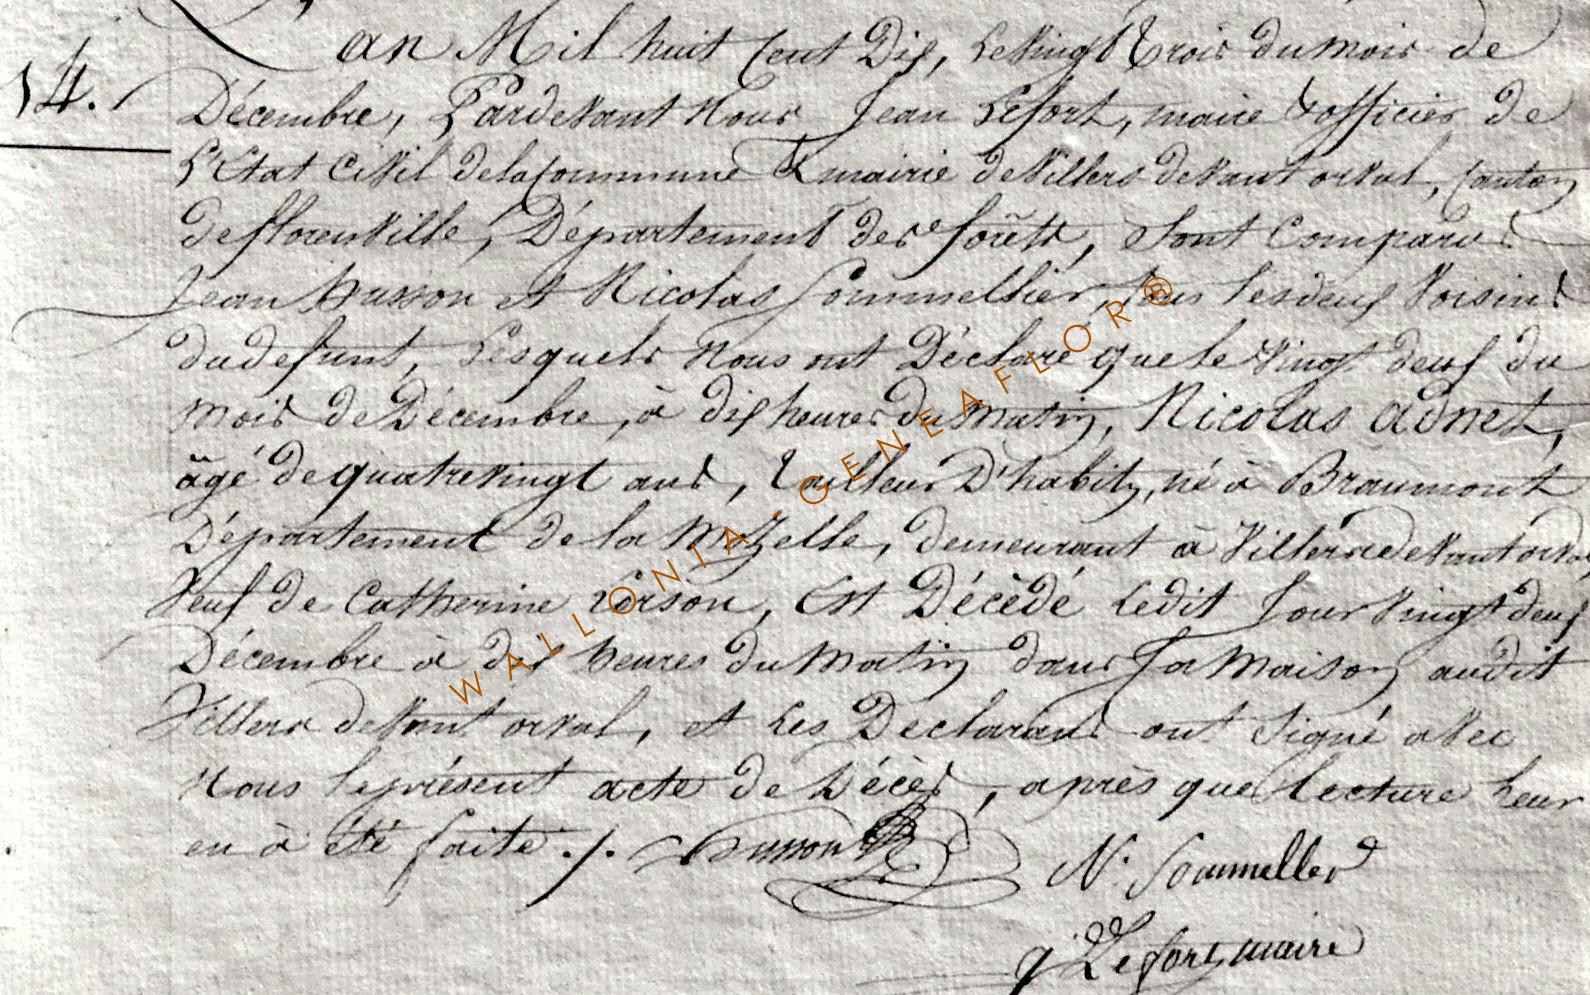 14.
L'an Mil huit Cent Dix, le vingt trois du mois de
Décembre, Pardevant Nous Jean Lefort, maire & officier de
l'Etat Civil de la Commune & mairie de Villers devant orval, Canton
de florenville, Département des forêts, sont Comparus
Jean husson et Nicolas Sommellier, tous les deux Voisins
du defunt, Lesquels Nous ont Déclaré que le vingt deux du
mois de Décembre, à dix heures du Matin, Nicolas adnet,
âgé de quatre vingt ans, tailleur D'habits, né à Braumont
Département de la Mozelle, demeurant à Villers devant orval
Veuf de Catherine Lorson, Est Décédé Ledit Jour vingt deux
Décembre à dix heures du Matin dans sa Maison audit
Villers devant orval, et Les Declarans ont Signé avec
Nous le présent acte de Décès, après que lecture leur
en à été faite ./. husson
N. Sommeller
J Lefort maire
WALLONIA-GENEAFLOR®